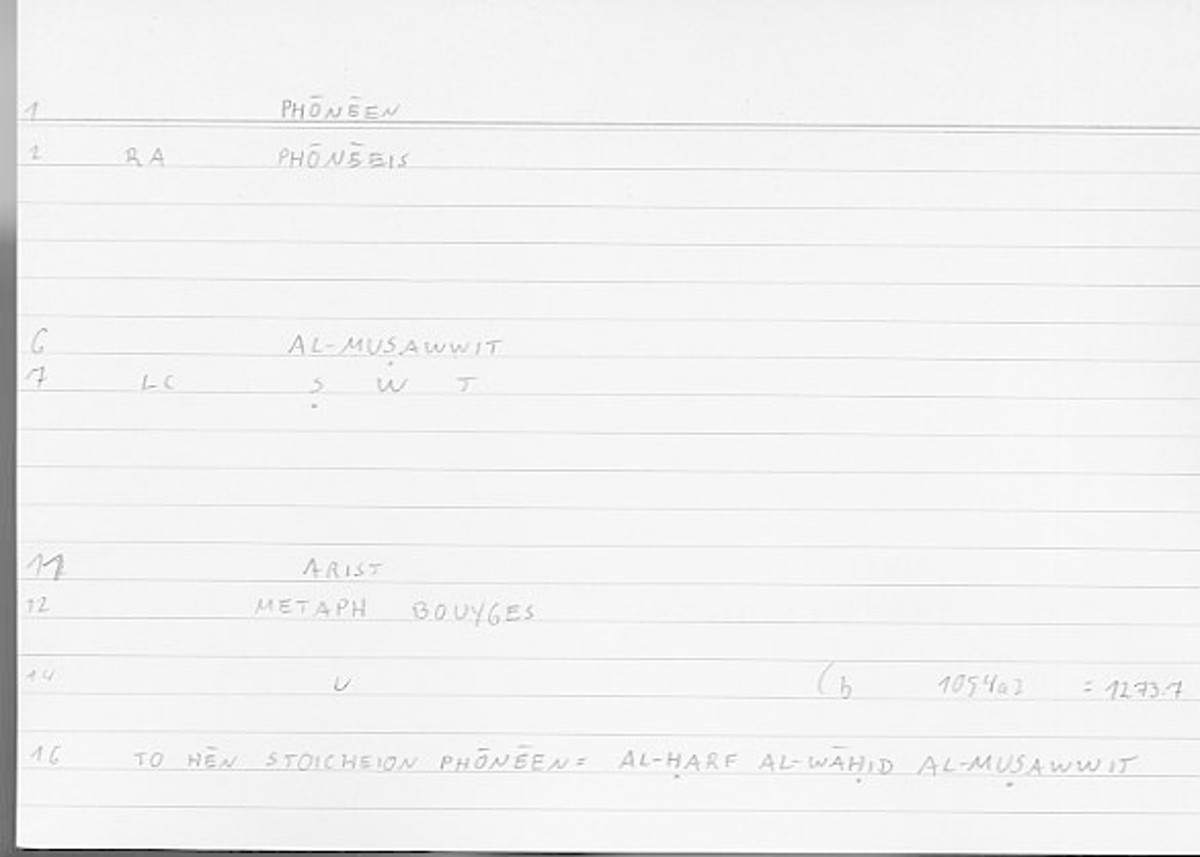 1 PHŌNĒEN
2 RA PHŌNĒEIS
6 AL-MUṢAWWIT
7 LC Ṣ W T
11 ARIST
12 METAPH BOUYGES
14 U (b 1054a2 = 1273.7
16 TO HĒN STOICHEION PHŌNĒEN = AL-ḤARF AL-WĀḤID AL-MUṢAWWIT